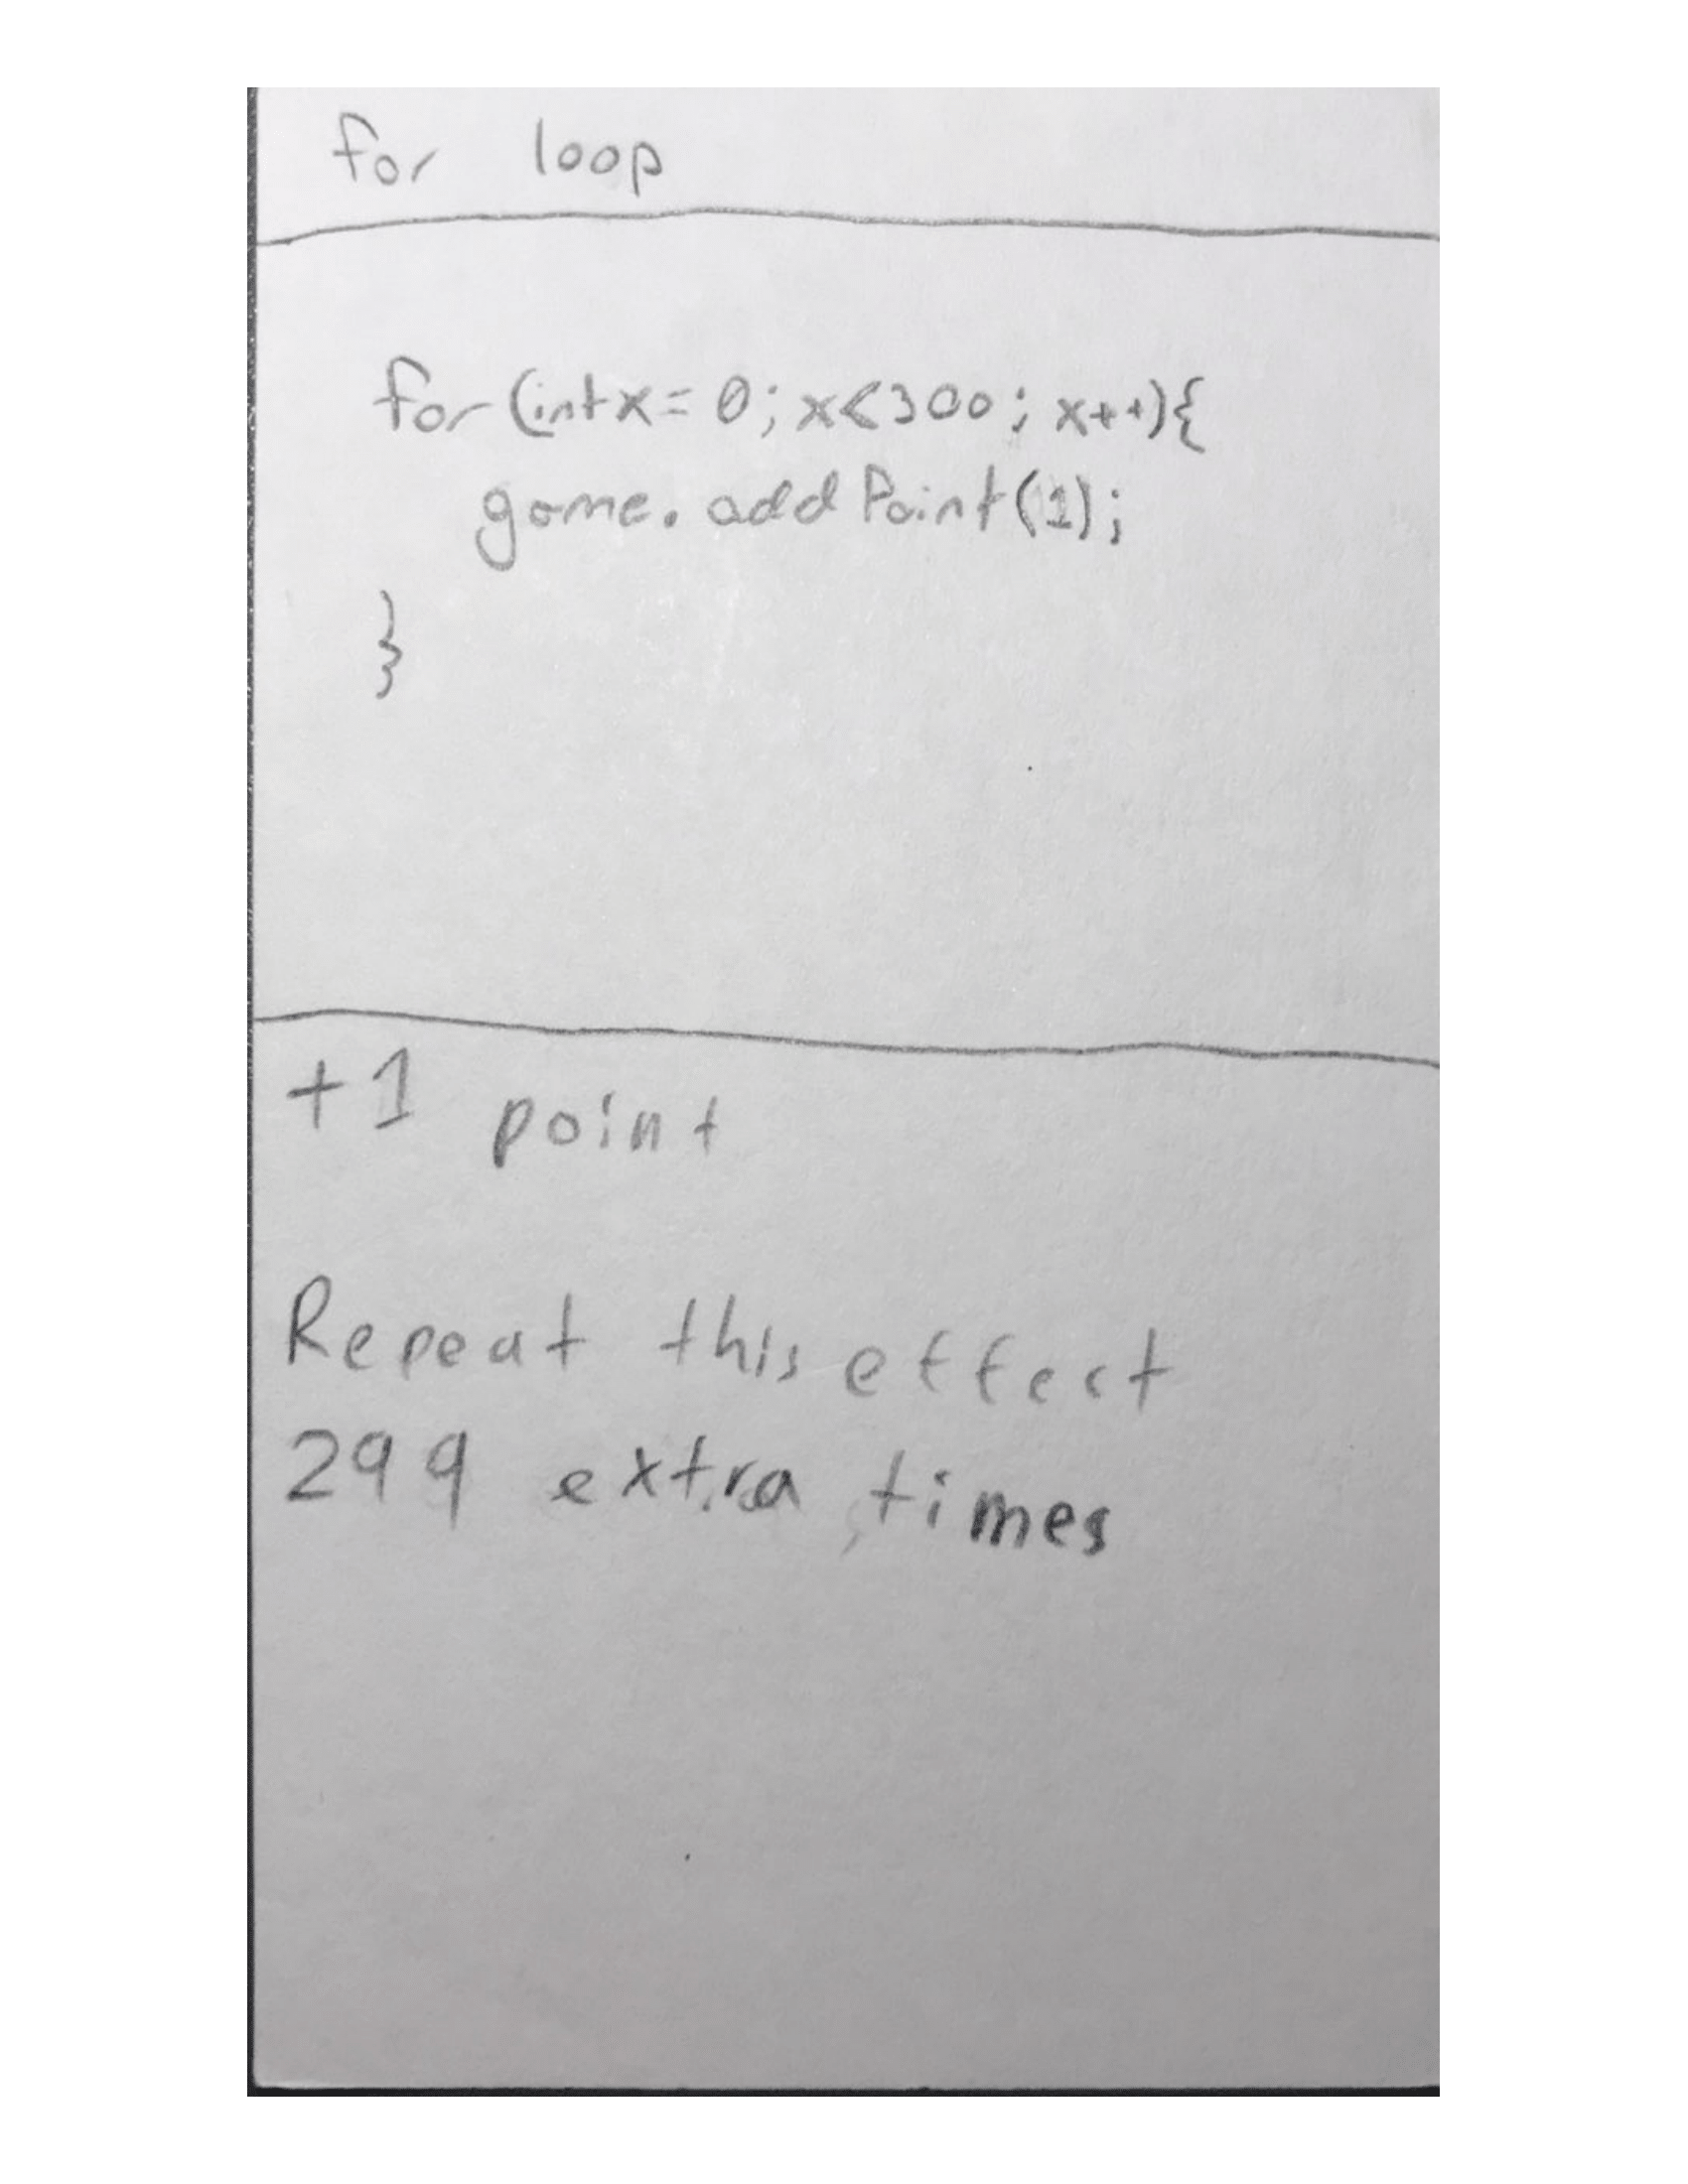 for loop
for (int x = 0; x<300; x++){
game.addPoint(1);
}
+1 point
Repeat this effect
299 extra times